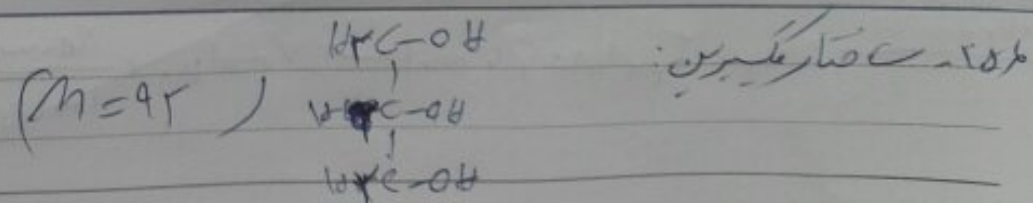 ۲۵۶- ساختار گلیسیرین:
H۲C-OH
HC-OH
H۲C-OH
(M=۹۲)